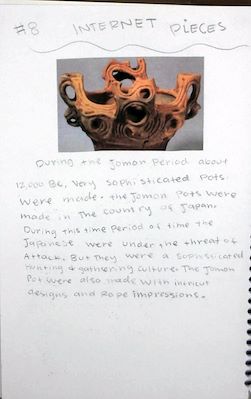 #8 INTERNET PIECES
During the Jomon Period about
12,000 BC, Very Sophisticated Pots
were made. the Jomon Pots were
made in the country of Japan.
During this time Period of time the
Japanese were under the threat of
Attack. But they were a sophisticated
hunting & gathering culture. The Jomon
Pot were also made with intricut
designs and Rope impressions.